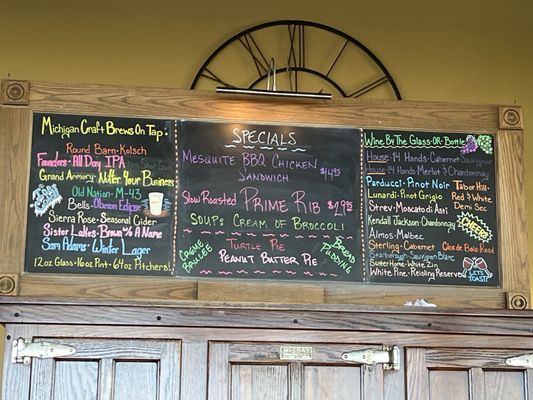 Michigan Craft Brews On Tap:
Round Barn-Kolsch
Founders-All Day IPA
Grand Armory-Nutter Your Business
Old Nation-M-43
Bells-Oberon Eclipse
Sierra Rose-Seasonal Cider
Sister Lakes-Brown % A Name
Sam Adams-Winter Lager
12oz Glass-16oz Pint-64oz Pitchers!
SPECIALS
MESQUITE BBQ CHICKEN
SANDWICH $14.95
Slow Roasted PRIME RIB $29.95
SOUP: CREAM OF BROCCOLI
TURTLE PIE
PEANUT BUTTER PIE
BREAD
PUDDING
Wine By The Glass-OR-Bottle
House-14 Hands-Cabernet Sauvignon
House-14 Hands Merlot & Chardonnay
Parducci-Pinot Noir
Lunardi-Pinot Grigio
Strev-Moscato di Asti
Kendall Jackson-Chardonnay
Alamos-Malbec
Sterling-Cabernet
Starborough-Sauvignon Blanc
Sutter Home-White Zin
White Pine-Reisling Reserve
Tabor Hill-
Red & White
Demi Sec
CHEERS!
Clos de Bois Rosé
LET'S
TOAST!